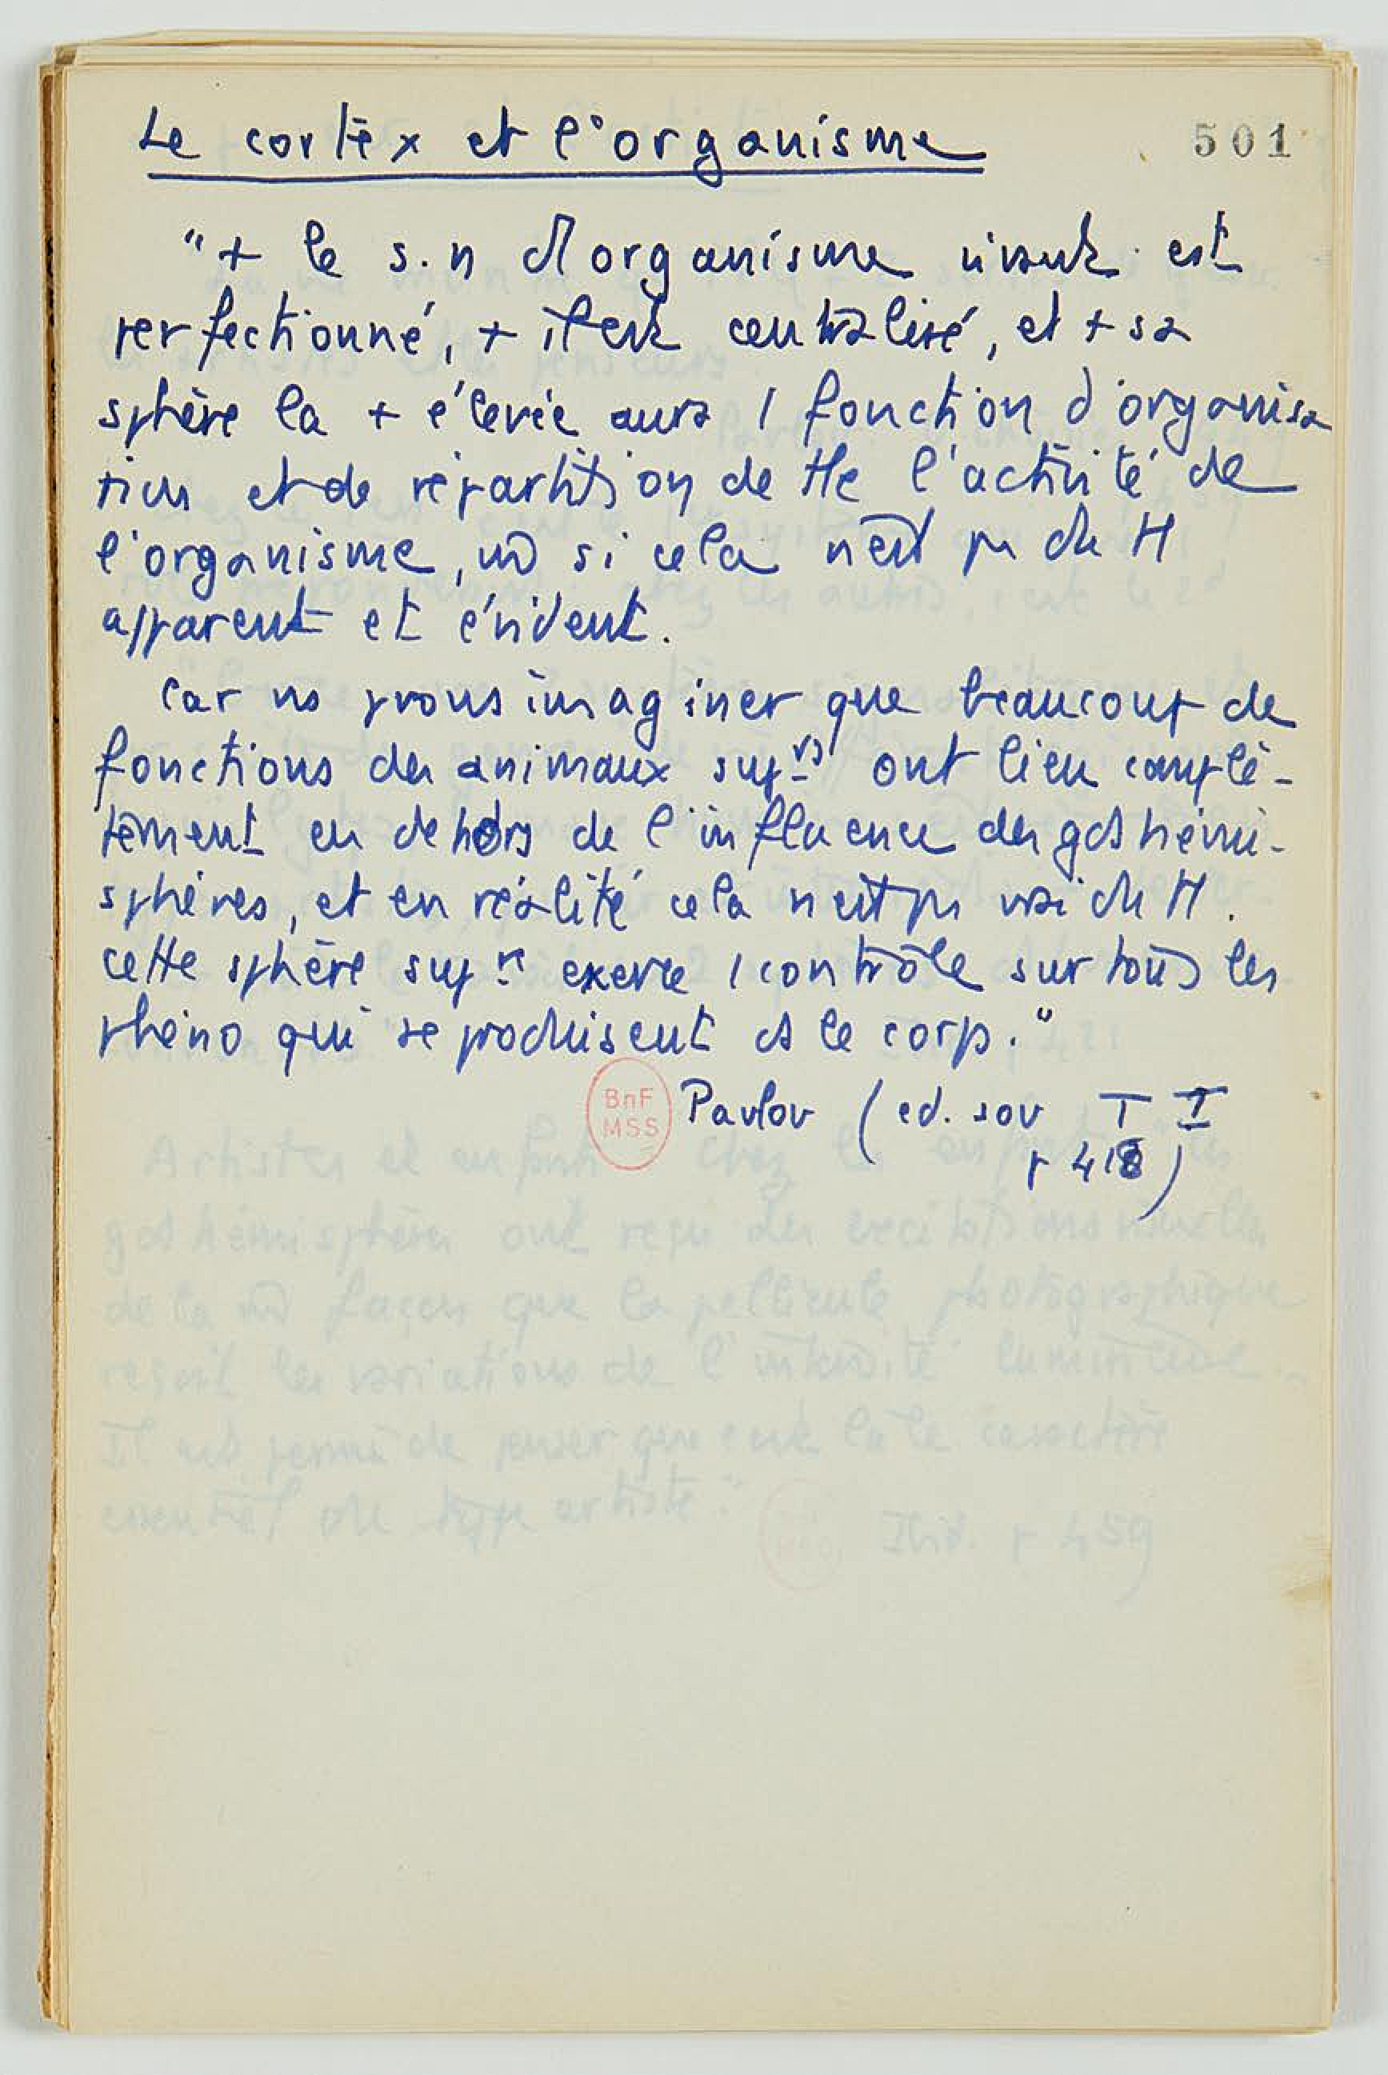 Le cortex et l'organisme
501
"+ le s.n d'1 organisme vivant est
perfectionné, + il est centralisé, et + sa
sphère la + élevée aura 1 fonction d'organisa
tion et de répartition de tte l'activité de
l'organisme, m̄ si cela n'est pas du tt
apparent et évident.
Car ns pvons imaginer que beaucoup de
fonctions des animaux suprs ont lieu complè-
tement en dehors de l'influence des gds hémi-
sphères, et en réalité cela n'est pas vrai du tt.
cette sphère supre exerce 1 contrôle sur tous les
phéno qui se produisent ds le corp."
Pavlov (ed. sov T I
p 418)
BnF
MSS